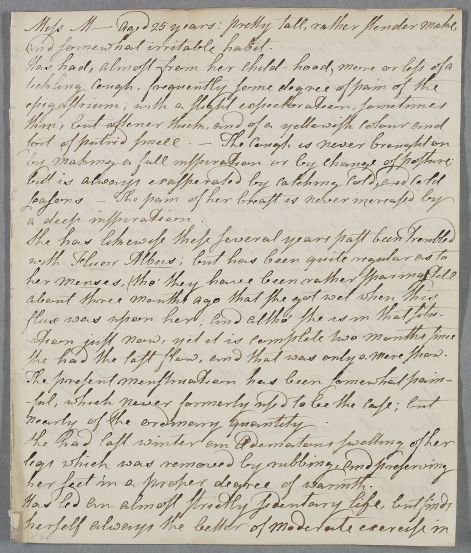 Miss M— Aged 25 years: pretty tall, rather slender make,
and somewhat irritable habit.
Has had, almost from her Child hood, more or less of a
tickling Cough, frequently some degree of pain of the
epigastrium; with a slight expectoration, sometimes
thin, but oftener thick, and of a yellowish colour and
sort of putrid smell. — The Cough is never brought on
by making a full inspiration or by change of posture;
but is always exasperated by catching Cold, and cold
seasons — The pain of her breast is never increased by
a deep inspiration.
She has likewise these several years past been troubled
with Fluor Albus; but has been quite regular as to
her menses, (tho' they have been rather sparing) till
about three months ago that she got wet when this
flux was upon her; and altho' she is in that situ-
-ation just now, yet it is complete two months since
she had the last flow, and that was only a mere show.
The present menstruation has been somewhat pain-
-ful, which never formerly used to be the case; but
nearly of the ordinary quantity.
She had last winter an Œdematous swelling of her
legs which was removed by rubbing, and preserving
her feet in a proper degree of warmth.
Has led an almost strictly sedentary life, but finds
herself always the better of moderate exercise in